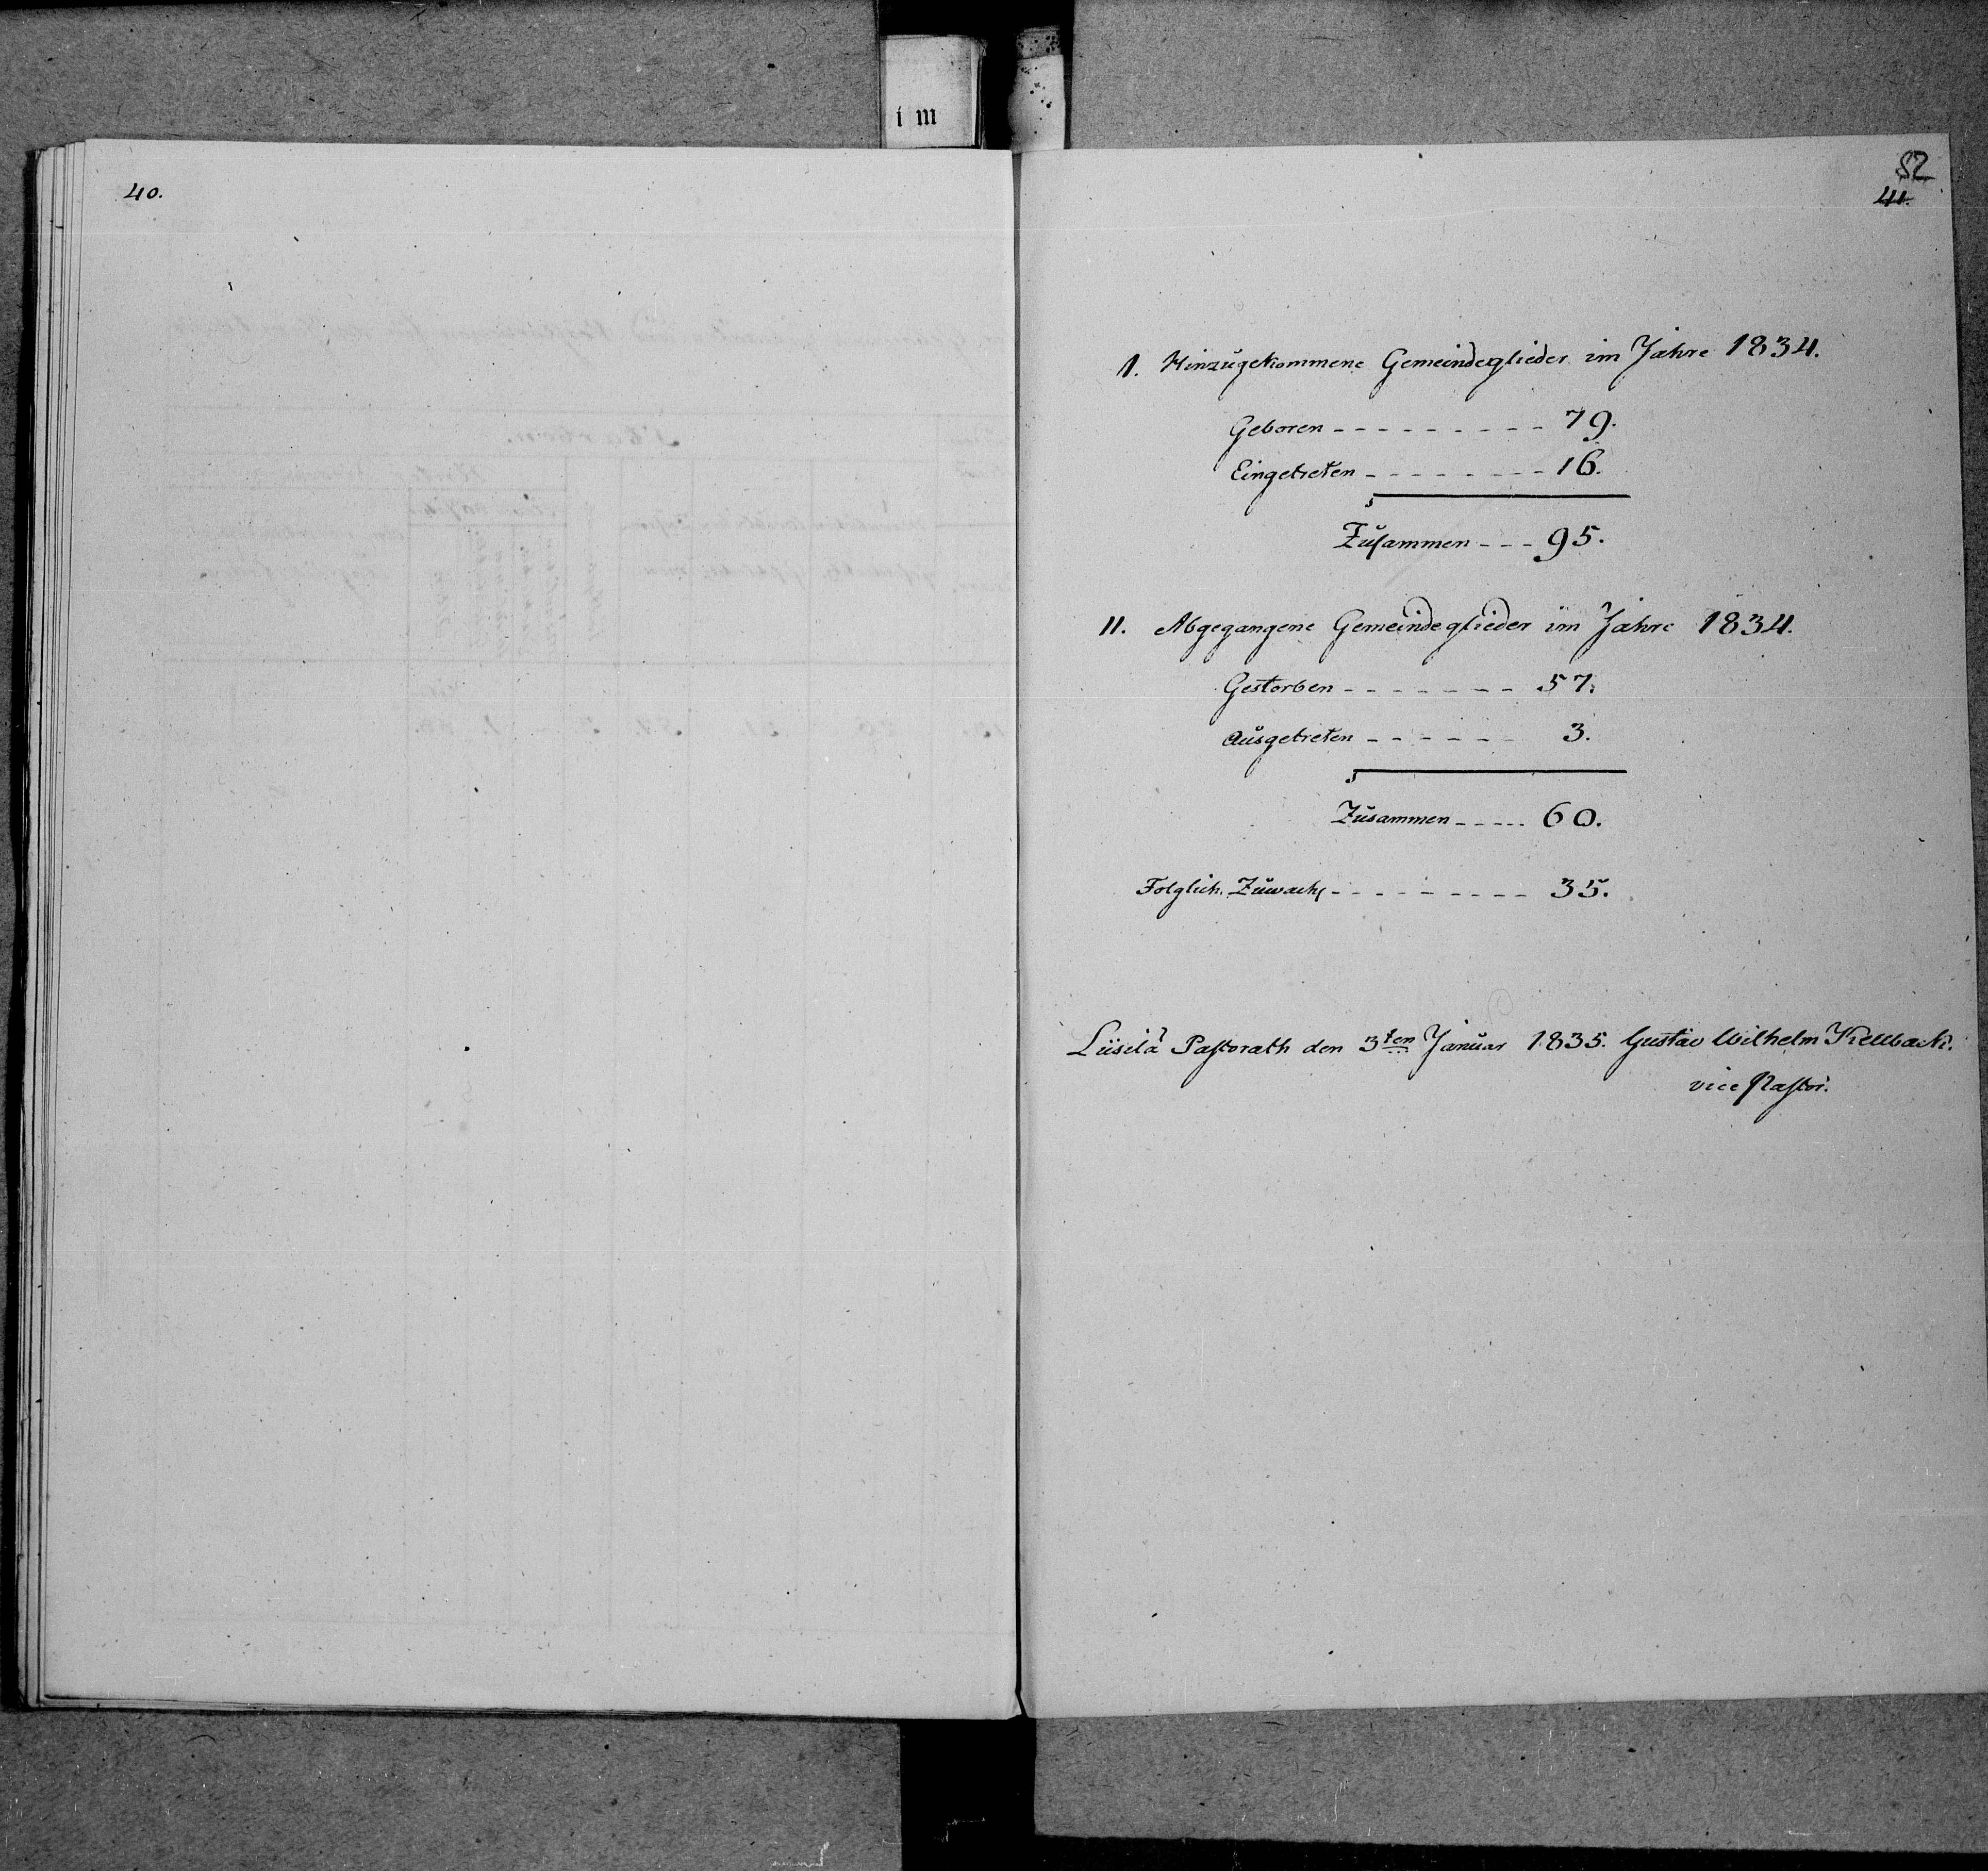 im
40.
52
41.
I. Hinzugekommene Gemeindeglieder im Jahre 1834.
Geboren - - - - - - - - - 79.
Eingetreten - - - - - - - - 16.
Zusammen - - - 95.
II. Abgegangene Gemeindeglieder im Jahre 1834.
Gestorben - - - - - - - 57.
Ausgetreten - - - - - - 3.
Zusammen - - - - - 60.
Folglich Zuwachs - - - - - - - - - 35.
Liisilä Pastorath den 3ten Januar 1835. Gustav Wilhelm
vice Pastor.